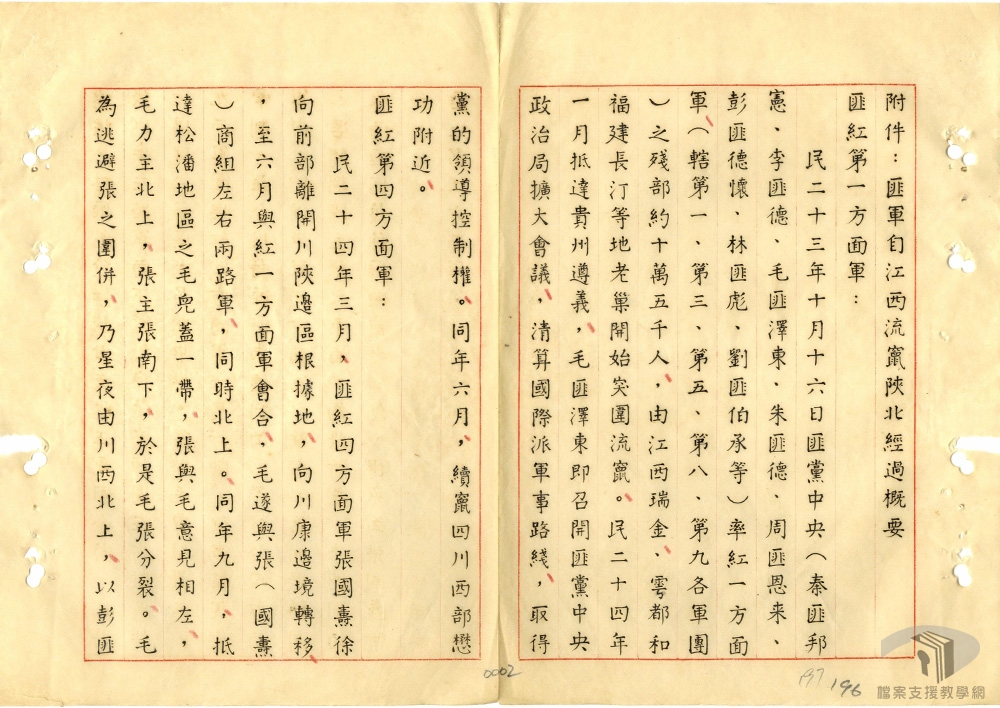 附件：匪軍自江西流竄陝北經過概要
匪紅第一方面軍：
民二十三年十月十六日匪黨中央（秦匪邦
憲、李匪德、毛匪澤東、朱匪德、周匪恩来、
彭匪德懷、林匪彪、劉匪伯承等）率紅一方面
軍（轄第一、第三、第五、第八、第九各軍團
）之殘部約十萬五千人，由江西瑞金、雩都和
福建長汀等地老巢開始突圍流竄。民二十四年
一月抵達貴州遵義，毛匪澤東即召開匪黨中央
政治局擴大會議，清算國際派軍事路綫，取得
黨的領導控制權。同年六月，續竄四川西部懋
功附近。
匪紅第四方面軍：
民二十四年三月，匪紅四方面軍張國燾徐
向前部離開川陝邊區根據地，向川康邊境轉移
，至六月與紅一方面軍會合，毛遂與張（國燾
）商組左右兩路軍，同時北上。同年九月，抵
達松潘地區之毛兜蓋一帶，張與毛意見相左，
毛力主北上，張主張南下，於是毛張分裂。毛
為逃避張之圍併，乃星夜由川西北上，以彭匪
0002
197
196
檔案支援教學網